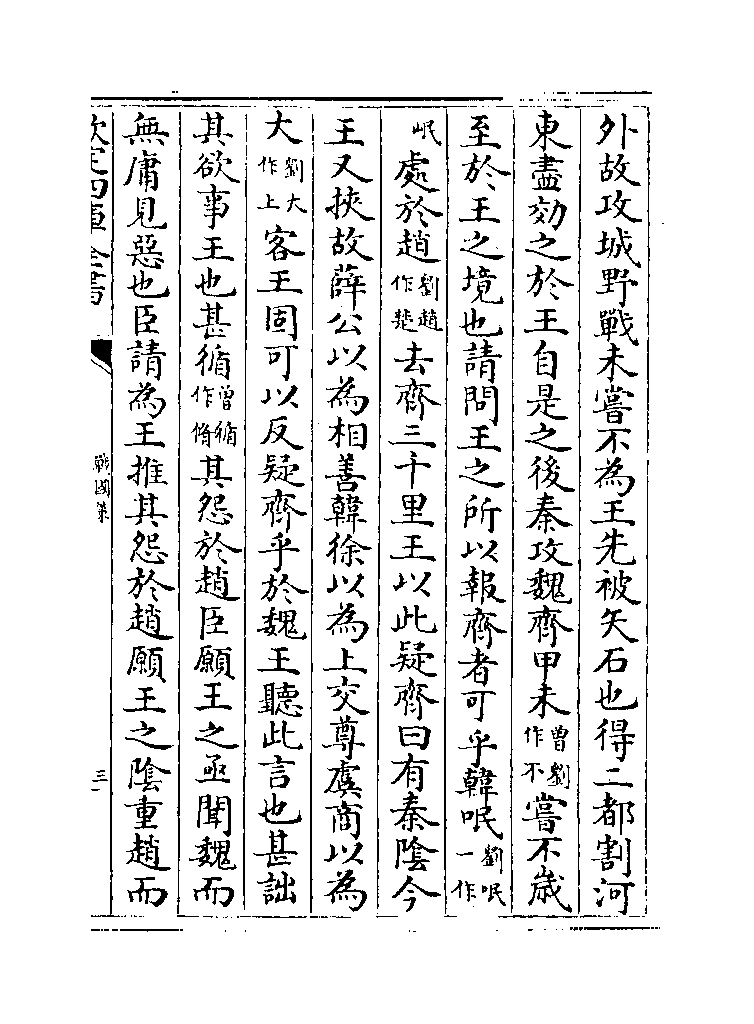 外故攻城野戰未嘗不為王先被矢石也得二都割河
東盡効之於王自是之後秦攻魏齊甲未曾劉作不嘗不歲
至於王之境也請問王之所以報齊者可乎韓呡劉呡一作
岷處於趙劉趙作楚去齊三千里王以此疑齊曰有秦陰今
王又挾故薛公以為相善韓徐以為上交尊虞商以為
大劉大作上客王固可以反疑齊乎於魏王聽此言也甚詘
其欲事王也甚循曾循作脩其怨於趙臣願王之亟聞魏而
無庸見惡也臣請為王推其怨於趙願王之陰重趙而
欽定四庫全書
戰國策
三